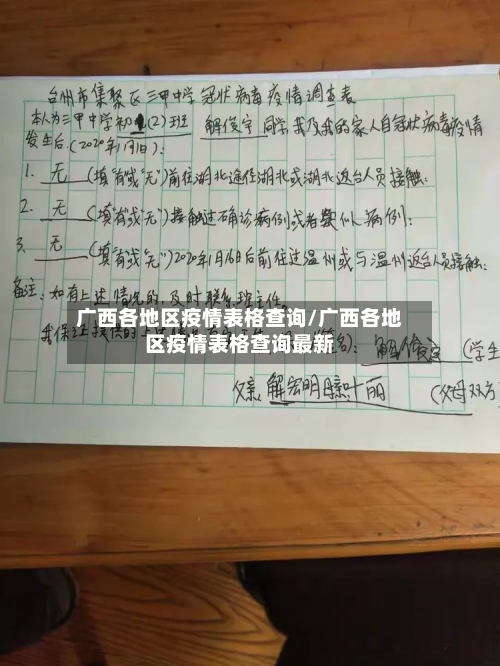 台州市集聚区三甲中学冠状病毒疫情调查表
本人为三甲中学初1(2)班 解俊宇 同学,我及我的家人自冠状病毒疫情
发生后(2020年1月1日):
1. 无 (填"有"或"无")前往湖北、途径湖北或湖北返台人员接触:
2. 无 (填"有"或"无")接触过确诊病例或者疑似病例:
3. 无 (填"有"或"无")2020年1月16日后前往过温州或与温州返台人员接触:
备注: 如有上述情况的,及时联系班主任。
广西各地区疫情表格查询/广西各地
区疫情表格查询最新
我保证提供的 解俊宇 (学生
父亲: 解宏明 母亲: 叶丽 (父母双方